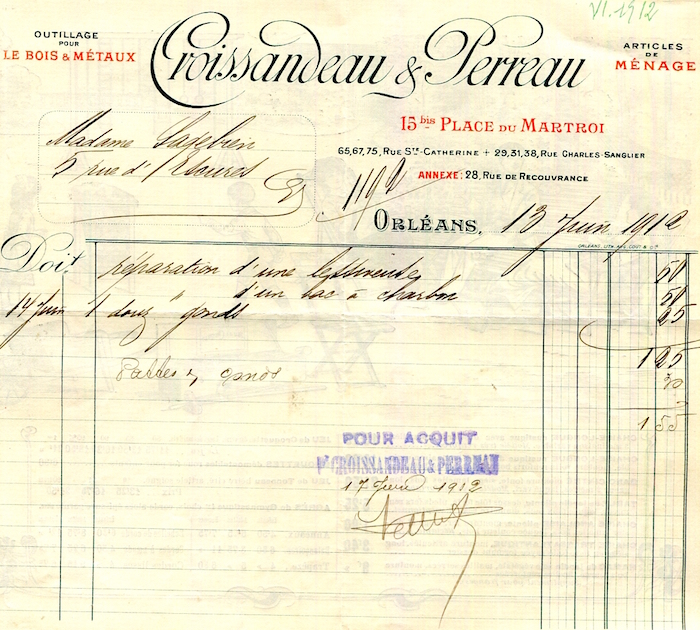 VI.1912
OUTILLAGE
POUR
LE BOIS & MÉTAUX
Croissandeau & Perreau
ARTICLES
DE
MÉNAGE
15 bis PLACE DU MARTROI
65,67,75, RUE STE-CATHERINE + 29,31,38, RUE CHARLES-SANGLIER
ANNEXE: 28, RUE DE RECOUVRANCE
Madame
5 rue d'
ORLÉANS, 13 Juin 1912
ORLÉANS, LITH.
Doit
réparation d'une lessiveuse 50
" d'un bac à charbon 50
14 Juin 1 douz gonds 25
1 25
Pattes
1 55
POUR ACQUIT
Pr CROISSANDEAU & PERREAU
17 Juin 1912